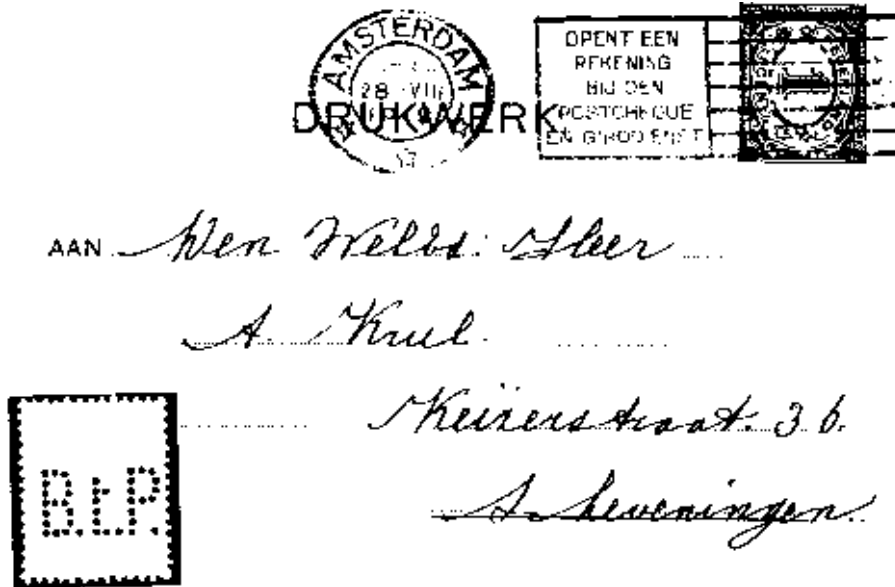 AMSTERDAM
28 VIII
OPENT EEN
REKENING
BIJ DEN
POSTCHEQUE
EN GIRODIENST
DRUKWERK
AAN Den WelEd: Heer
A. Krul.
Keizerstraat. 36.
Scheveningen.
B.t.P.